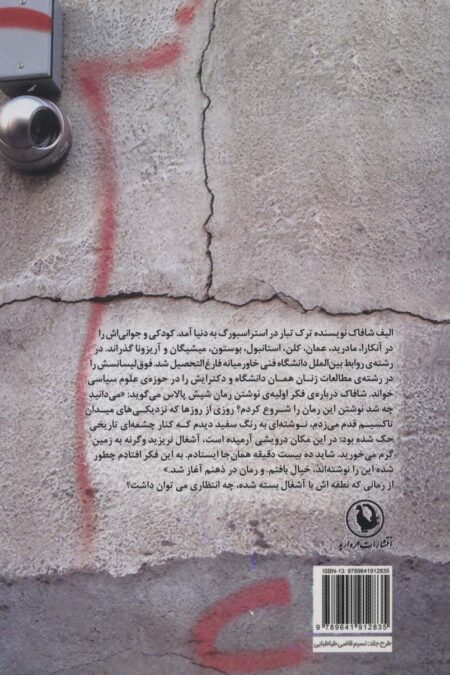 الیف شافاک نویسنده ترک تبار در استراسبورگ به دنیا آمد. کودکی و جوانی‌اش را
در آنکارا، مادرید، عمان، کلن، استانبول، بوستون، میشیگان و آریزونا گذراند. در
رشته‌ی روابط بین‌الملل دانشگاه فنی خاورمیانه فارغ‌التحصیل شد. فوق‌لیسانسش را
در رشته‌ی مطالعات زنان همان دانشگاه و دکترایش را در حوزه‌ی علوم سیاسی
خواند. شافاک درباره‌ی فکر اولیه‌ی نوشتن رمان شپش پالاس می‌گوید: «می‌دانید
چه شد نوشتن این رمان را شروع کردم؟ روزی از روزها که نزدیکی‌های میدان
تاکسیم قدم می‌زدم، نوشته‌ای به رنگ سفید دیدم که کنار چشمه‌ای تاریخی
حک شده بود: در این مکان درویشی آرمیده است، آشغال نریزید وگرنه به زمین
گرم می‌خورید. شاید ده بیست دقیقه همان‌جا ایستادم. به این فکر افتادم چطور
شده این را نوشته‌اند، خیال بافتم، و رمان در ذهنم آغاز شد.»
از رمانی که نطفه اش با آشغال بسته شده، چه انتظاری می توان داشت؟
انتشارات مروارید
ISBN-13: 9789641912835
9 789641 912835
طرح جلد: نسیم قاضی طباطبایی